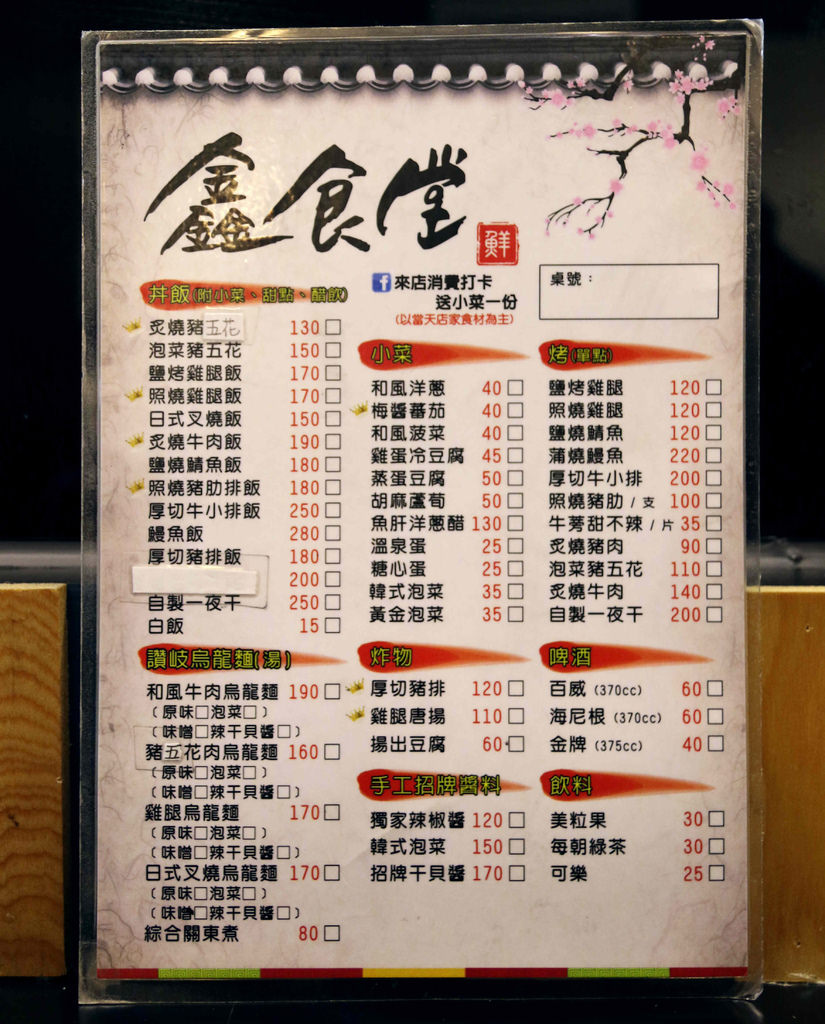 鑫食堂
鮮
f 來店消費打卡
送小菜一份
(以當天店家食材為主)
桌號：
丼飯(附小菜、甜點、醋飲)
炙燒豬五花 130□
泡菜豬五花 150□
鹽烤雞腿飯 170□
照燒雞腿飯 170□
日式叉燒飯 150□
炙燒牛肉飯 190□
鹽燒鯖魚飯 180□
照燒豬肋排飯 180□
厚切牛小排飯 250□
鰻魚飯 280□
厚切豬排飯 180□
200□
自製一夜干 250□
白飯 15□
讚岐烏龍麵(湯)
和風牛肉烏龍麵 190□
(原味□泡菜□)
(味噌□辣干貝醬□)
豬五花肉烏龍麵 160□
(原味□泡菜□)
(味噌□辣干貝醬□)
雞腿烏龍麵 170□
(原味□泡菜□)
(味噌□辣干貝醬□)
日式叉燒烏龍麵 170□
(原味□泡菜□)
(味噌□辣干貝醬□)
綜合關東煮 80□
小菜
和風洋蔥 40□
梅醬蕃茄 40□
和風菠菜 40□
雞蛋冷豆腐 45□
蒸蛋豆腐 50□
胡麻蘆荀 50□
魚肝洋蔥醋 130□
溫泉蛋 25□
糖心蛋 25□
韓式泡菜 35□
黃金泡菜 35□
炸物
厚切豬排 120□
雞腿唐揚 110□
揚出豆腐 60□
手工招牌醬料
獨家辣椒醬 120□
韓式泡菜 150□
招牌干貝醬 170□
烤(單點)
鹽烤雞腿 120□
照燒雞腿 120□
鹽燒鯖魚 120□
蒲燒鰻魚 220□
厚切牛小排 200□
照燒豬肋 / 支 100□
牛蒡甜不辣 / 片 35□
炙燒豬肉 90□
泡菜豬五花 110□
炙燒牛肉 140□
自製一夜干 200□
啤酒
百威 (370cc) 60□
海尼根 (370cc) 60□
金牌 (375cc) 40□
飲料
美粒果 30□
每朝綠茶 30□
可樂 25□